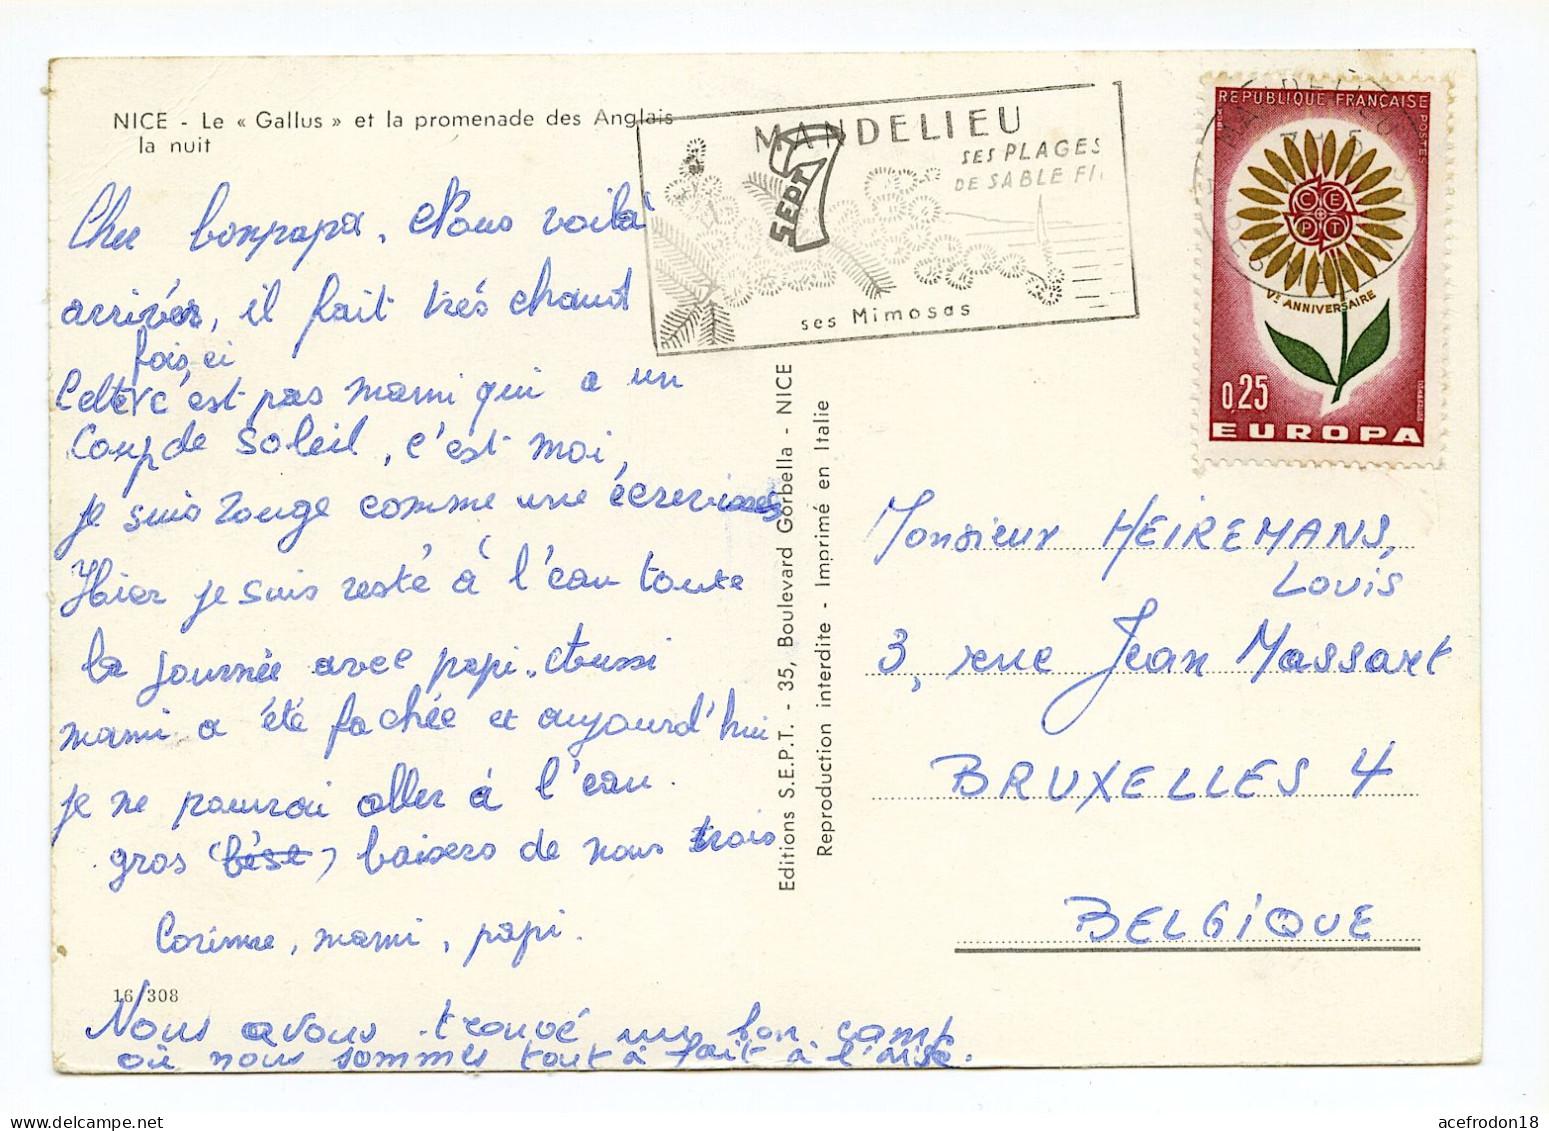 NICE - Le « Gallus » et la promenade des Anglais
la nuit
MANDELIEU
SES PLAGES
DE SABLE FI
SEPT
ses Mimosas
REPUBLIQUE FRANÇAISE
POSTES
CEPT
Ve ANNIVERSAIRE
0,25
EUROPA
Cher bonpapa, Nous voilà
arrivés, il fait très chaud
fois, ci
Cette c'est pas mami qui a un
Coup de soleil, c'est moi,
je suis rouge comme une écrevisse
Hier je suis resté à l'eau toute
la journée avec papi. Aussi
mami a été fachée et aujourd'hui
je ne pourrai aller à l'eau.
gros (bése) baisers de nous trois
Corinne, mami, papi.
16/308
Nous avons trouvé un bon camp
où nous sommes tout à fait à l'aise.
Editions S.E.P.T. - 35, Boulevard Gorbella - NICE
Reproduction interdite - Imprimé en Italie
Monsieur HEIREMANS,
Louis
3, rue Jean Massart
BRUXELLES 4
BELGIQUE
acefrodon18